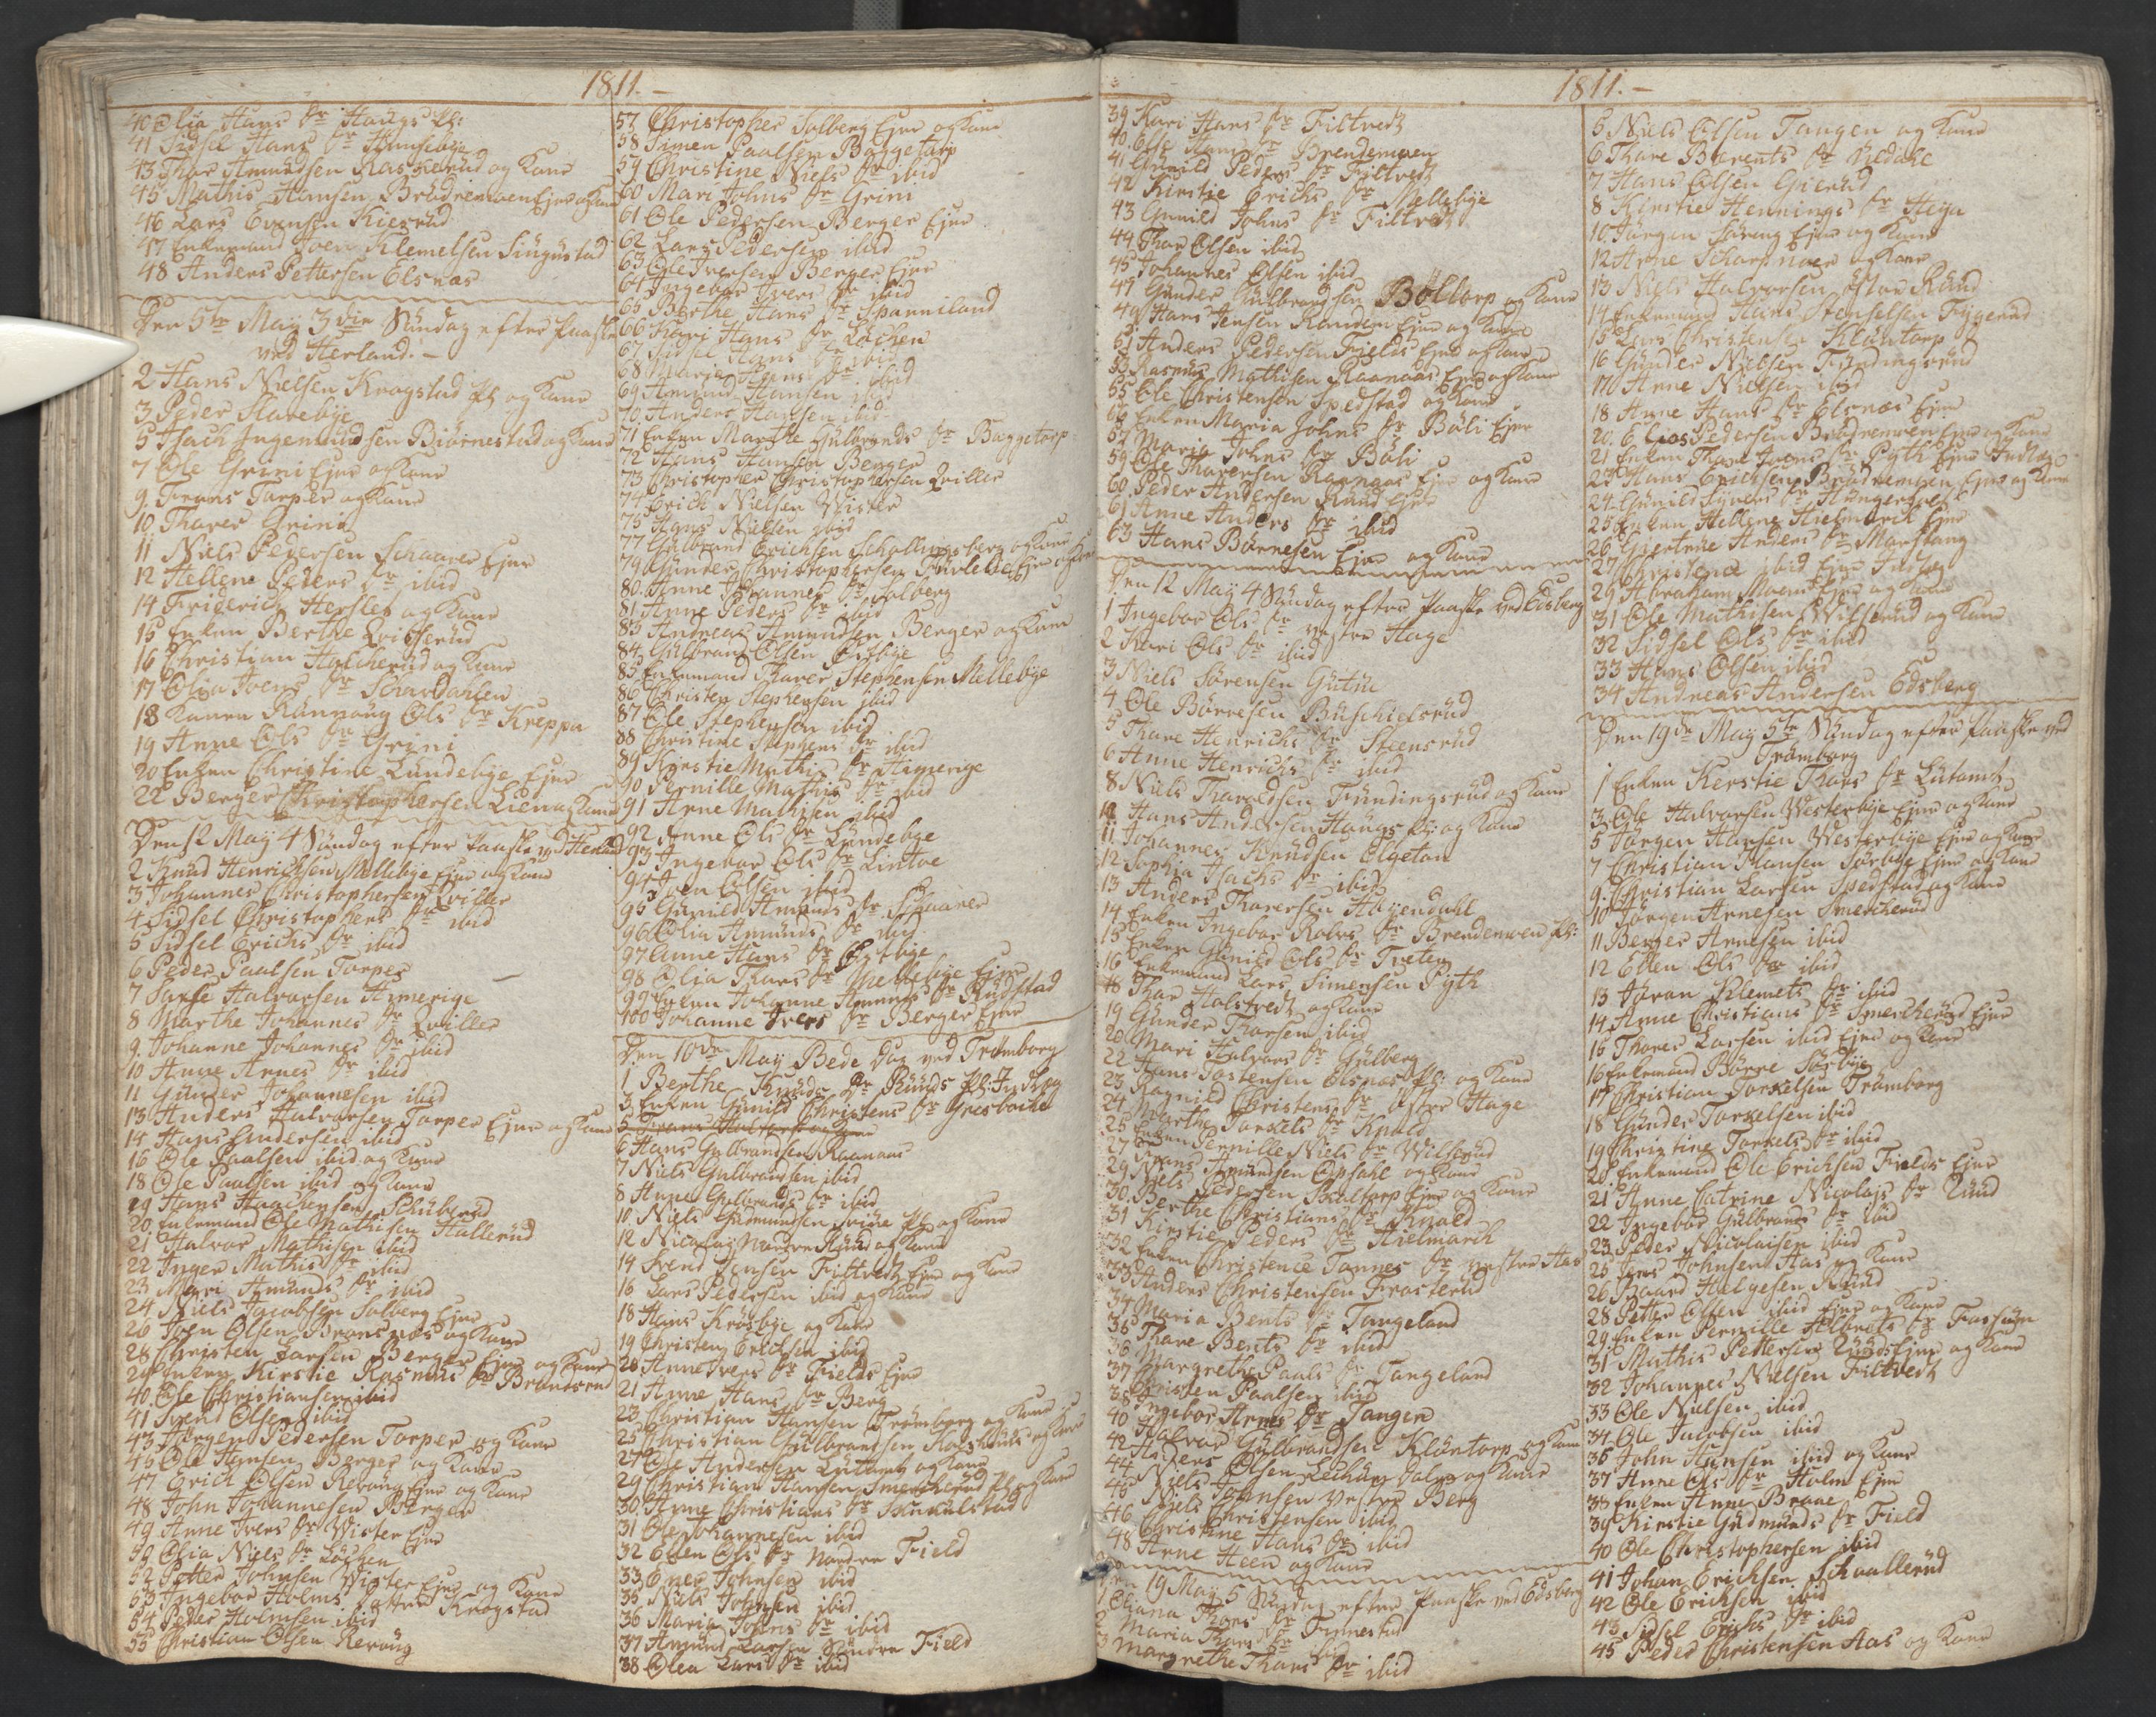 1811.
40 Olia Hans Dr Haugs Pl:
41 Sidsel Hans Dr Hunsebye
43 Thor Amundsen Raskerud og Kane
45 Mathis Hansen Brødremoen Ejer og Kane
46 Lars Evensen Kierud
47 Enkemand Joen Klemetsen Singustad
48 Anders Pettersen Elsnæs
Den 5te May 3die Søndag efter Paaske
ved Herland. -
2 Hans Nielsen Kragstad Pl og Kane
3 Peder Slarebye
5 Isach Ingemundsen Biørnestad og Kane
7 Ole Grini Ejer og Kane
9. Frans Torper og Kane
10 Tharer Grini
11 Niels Pedersen Schaarer Ejer
12 Hellene Peders Dr ibid
14 Friderich Hersleb og Kane
15 Enken Berthe Qvisserud
16 Christian Halcherud og Kane
17 Olia Joens Dr Schardahlen
18 Kanen Rannaug Ols Dr Kreppa
19 Anne Ols Dr Grini
20 Enken Christine Lundebye Ejer
22 Berger Christophersen Lien og Kane
Den 12 May 4 Søndag efter Paaske ved Herland
2 Knud Henrichsen Mellebye Ejer og Kane
3 Johannes Christophersen Qviller
4 Sidsel Christophers Dr ibid
5 Sidsel Erichs Dr ibid
6 Peder Paalsen Torper
7 Saxe Halvorsen Himerige
8 Marthe Johannes Dr Qviller
9. Johanne Johannes Dr ibid
10 Anne Arnes Dr ibid
11 Gunder Johannesen ibid
13 Anders Halvorsen Torper Ejer og Kane
14 Hans Andersen ibid
16 Ole Paalsen ibid og Kane
18 Ole Paalsen ibid og Kane
19 Hans Haachensen Schuberud
20. Enkemand Ole Mathisen Hallerud
21 Halvor Mathisen ibid
22 Inger Mathis Dr ibid
23 Mari Amunds Dr ibid
24 Niels Jacobsen Solberg Ejer
26 John Olsen Bronsnæs og Kane
28 Christen Larsen Berger Ejer og Kane
29 Enken Kirstie Rasmus Dr Brandsrud
40. Ole Christiansen ibid
41 Svend Olsen ibid
43 Jørgen Pedersen Torper og Kane
45 Ole Hansen Berger og Kane
47 Erich Olsen Revoug Ejer og Kane
48 John Johannesen Berger
49 Anne Ivers Dr Wister Ejer
50 Olia Niels Dr Løchen
52 Petter Johnsen Wister Ejer og Kane
53 Ingebor Holms Dr østre Kragstad
54 Peder Holmsen ibid
55 Christian Olsen Revoug
57 Christopher Solberg Ejer og Kane
58 Simen Paalsen Baggetorp
59 Christine Niels Dr ibid
60 Mari Johns Dr Grini
61 Ole Pedersen Berger Ejer
62 Lars Pedersen ibid
63 Ole Iversen Berger Ejer
64 Ingebor Ivers Dr ibid
65 Berthe Hans Dr Spanniland
66 Kari Hans Dr Løchen
67 Sidsel Hans Dr ibid
68 Maria Hans Dr ibid
69 Amund Hansen ibid
70. Anders Hansen ibid
71 Enken Marthe Gulbrands Dr Baggetorp
72 Hans Hansen Berger
73 Christopher Christophersen Qviller
74 Erich Nielsen Wister
75 Hans Nielsen ibid
77 Gulbrand Erichsen Schallingsberg og Kane
79 Gunder Christophersen Ejer og Kane
80. Anne Johannes Dr Solberg
81. Anne Peders Dr ibid
83 Andreas Amundsen Berger og Kane
84. Gulbrand Olsen Østbye
85 Enkemand Tharer Stephensen Mellebye
86 Christen Stephensen ibid
87 Ole Stephensen ibid
88 Christine Stephens Dr ibid
89 Kirstie Mathis Dr Himerige
90 Pernille Mathis Dr ibid
91 Arne Mathisen ibid
92 Anne Ols Dr Lundebye
93 Ingebor Ols Dr Lintoe
94 Joen Olsen ibid
95 Gunild Amunds Dr Schaarer
96 Olia Amunds Dr ibid
97 Anne Hans Dr Østbye
98 Olia Thors Dr Mellebye Ejer
99 Enken Johanne Hannes Dr Rudstad
100 Johanne Ivers Dr Berger Ejer
Den 10de May Bede Dag ved Trømborg
1 Berthe Knuds Dr Ruuds Pl: Indlæg
3. Enken Gunild Christens Dr Gresbache
6 Hans Gulbrandsen Raanaas
7 Niels Gulbrandsen ibid
8 Anne Gulbrands Dr ibid
10. Niels Gudmundsen Pl og Kane
12 Nicolay Nordre Ruud og Kane
14 Svend Jensen Filtvedt Ejer og Kane
16 Lars Pedersen ibid og Kane
18 Hans Krosbye og Kane
19 Christen Erichsen ibid
20. Anne Ivers Dr Fields Ejer
21 Anne Hans Dr Berg
23 Christian Hansen Trømborg og Kane
25 Christian Gulbrandsen og Kane
27 Ole Andersen Lutamt og Kane
29 Christian Hansen Smercherud Pl og Kane
30. Anne Christians Dr
31 Ole Johannesen ibid
32 Ellen Ols Dr Nordre Field
33 Even Johnsen ibid
35 Niels Johnsen ibid
36 Maria Johns Dr ibid
37 Amund Larsen Søndre Field
38 Olea Lars Dr ibid
1811. -
39 Kari Hans Dr Filtvedt
40. Else Hans Dr Brendemoen
41 Gunild Peders Dr Filtvedt
42 Kirstie Erichs Dr Mellebye
43 Gunild Johns Dr Filtvedt
44 Thor Olsen ibid
45 Johannes Olsen ibid
47 Gunder Gulbrandsen Böltorp og Kane
49 Hans Jensen Ramdem Ejer og Kane
51 Anders Pedersen Fields Ejer og Kane
53 Rasmus Mathisen Raanaas Ejer og Kane
55 Ole Christensen Spedstad og Kane
56 Enken Maria Johns Dr Böli Ejer
57 Maria Johns Dr Böli
59 Ole Tharersen Raanaas Ejer og Kane
60 Peder Andersen Ruud Ejer
61 Anne Anders Dr ibid
63 Hans Børresen Ejer og Kane
Den 12 May 4 Søndag efter Paaske ved Edsberg
1 Ingebor Ols Dr vestre Hage
2 Kari Ols Dr ibid
3 Niels Sørensen Gutu
4 Ole Børresen Buschielsrud
5 Thare Henrichs Dr Steensrud
6 Anne Henrichs Dr ibid
8 Niels Tharaldsen Fundingsrud og Kane
10 Hans Andersen Haugs Pl: og Kane
11 Johannes Knudsen Elgetan
12 Sophia Isachs Dr ibid
13 Anders Tharersen Høyendahl
14 Enken Ingebor Robrs Dr Brendemoen Pl:
15 Enken Gunild Ols Dr Treten
16 Enkemand Lars Simensen Pyth
18 Thor Holstvedt og Kane
19 Gunder Thorsen ibid
20 Mari Halvors Dr Gulberg
22 Hans Tostensen Elsnæs Pl: og Kane
23 Ragnild Christens Dr østre Hage
24 Marthe Torkels Dr Knold
25 Enken Pernille Niels Dr Wilserud
27 Frans Amundsen Opsahl og Kane
29 Niels Pedersen Ejer og Kane
30. Berthe Christians Dr Knold
31 Kirstie Peders Dr Hielmarck
32 Enken Christence Tønnes Dr vestre Aas
33 Anders Christensen Frosterud
34 Maria Bents Dr Tangeland
35 Thare Bents Dr ibid
36 Margrethe Paals Dr Tangeland
37 Christen Paalsen ibid
38 Ingebor Arnes Dr Tangen
40 Halvor Gulbrandsen Kluntorp og Kane
42 Anders Olsen og Kane
44 Niels Johnsen vestre Berg
45 Niels Christensen ibid
46 Christine Hans Dr ibid
48 Arne Heen og Kane
Den 19 May 5 Søndag efter Paaske ved Edsberg
1 Oliana Thors Dr Finnestad
2 Maria Thors Dr ibid
3 Margrethe Thors Dr ibid
1811. -
5 Niels Olsen Tangen og Kane
6 Thare Børents Dr Nedahl
7 Hans Olsen Gierud
8 Kirstie Hennings Dr Heija
10. Jørgen Søreng Ejer og Kane
12 Arne Scharpnoer og Kane
13 Niels Halvorsen østre Ruud
14 Enkemand Hans Stenselsen Tygerud
15 Lars Christensen Kluntorp
16 Gunder Nielsen Fundingsrud
17 Arne Nielsen ibid
18 Anne Hans Dr Elsnæs Ejer
20. Elias Pedersen Brødremoen Ejer og Kane
21 Enken Thore Joens Dr Pyth Ejer Indlæg
23 Hans Erichsen Brødremoen Ejer og Kane
24. Gunild Syvers Dr Hungerholt
25 Enken Hellene Hielmarck Ejer
26 Giertrue Anders Dr Morstang
27 Christence ibid Ejer Indlæg
29 Abraham Moen Ejer og Kane
31 Ole Mathisen Wilserud og Kane
32 Sidsel Ols Dr ibid
33 Hans Olsen ibid
34 Andreas Andersen Edsberg
Den 19de May 5te Søndag efter Paaske ved
Trømborg
1 Enken Kerstie Thors Dr Lutamt
3. Ole Halvorsen Westerbye Ejer og Kane
5 Jørgen Hansen Westerbye Ejer og Kane
7 Christian Hansen Sørbye Ejer og Kane
9. Christian Larsen Spedstad og Kane
10 Jørgen Arnesen Smercherud
11 Berger Arnesen ibid
12 Ellen Ols Dr ibid
13 Jøran Klemets Dr ibid
14 Anne Christians Dr Smercherud Ejer
15 Tharer Larsen ibid Ejer og Kane
16 Enkemand Børre Sørbye
17 Christian Torkelsen Trømborg
18 Gunder Torkelsen ibid
19 Christine Torkels Dr ibid
20. Enkemand Ole Erichsen Fields Ejer
21 Anne Catrine Nicolajs Dr Ruud
22 Ingebor Gulbrands Dr ibid
23 Peder Nicolaisen ibid
25 Jens Johnsen Aas og Kane
26 Baard Helgesen Ruud
28 Petter Olsen ibid Ejer og Kane
29. Enken Pernille Helbrets Dr Fossum
31 Mathis Pettersen Ruuds Ejer og Kane
32 Johannes Nielsen Filtvedt
33 Ole Nielsen ibid
34 Ole Jacobsen ibid
36 John Hansen ibid og Kane
37 Anne Ols Dr Holm Ejer
38 Enken Anne Braae
39 Kirstie Gudmunds Dr Field
40 Ole Christophersen ibid
41 Johan Erichsen Schaallerud
42 Ole Erichsen ibid
43 Sidsel Erichs Dr ibid
45 Peder Christensen Aas og Kane